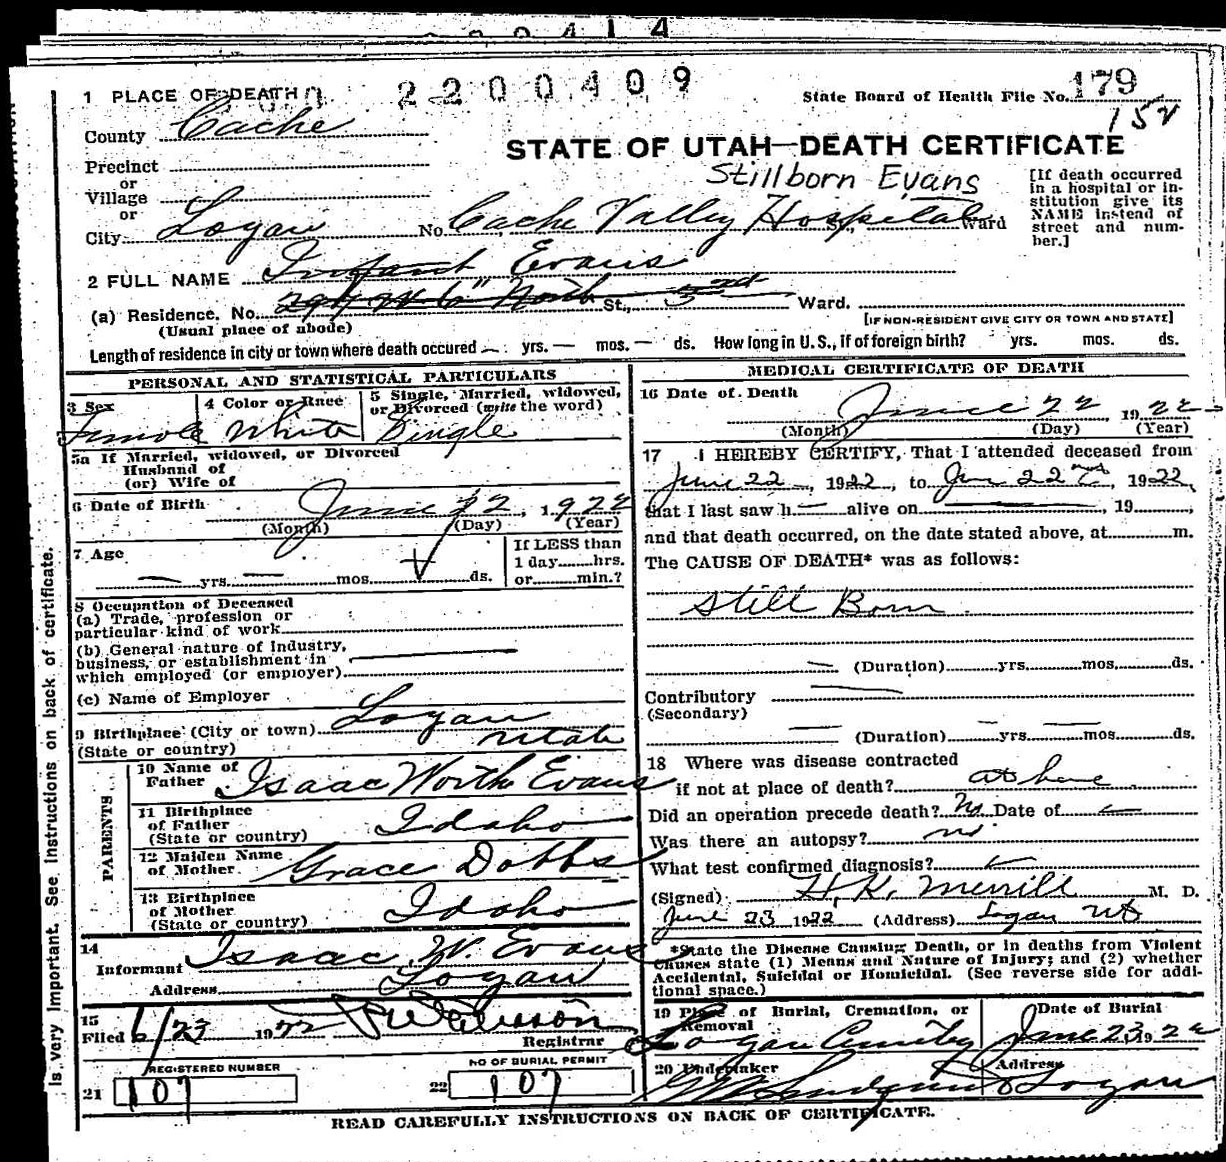 2200409
1 PLACE OF DEATH
State Board of Health File No. 179
152
County Cache
STATE OF UTAH—DEATH CERTIFICATE
Precinct
or
Village
or
Stillborn Evans
[If death occurred in a hospital or institution give its NAME instead of street and number.]
City Logan No. Cache Valley Hospital St., Ward
2 FULL NAME Infant Evans
(a) Residence. No. North St., 3rd Ward.
(Usual place of abode) [IF NON-RESIDENT GIVE CITY OR TOWN AND STATE]
Length of residence in city or town where death occured — yrs. — mos. — ds. How long in U.S., if of foreign birth? yrs. mos. ds.
PERSONAL AND STATISTICAL PARTICULARS
3 Sex 4 Color or Race 5 Single, Married, widowed, or Divorced (write the word)
Female White Single
5a If Married, widowed, or Divorced
Husband of
(or) Wife of
6 Date of Birth June 22, 1922
(Month) (Day) (Year)
7 Age
— yrs. — mos. ds.
If LESS than
1 day hrs.
or min.?
8 Occupation of Deceased
(a) Trade, profession or
particular kind of work
(b) General nature of Industry,
business, or establishment in
which employed (or employer)
(c) Name of Employer
9 Birthplace (City or town) Logan
(State or country) Utah
PARENTS
10 Name of Father Isaac Worth Evans
11 Birthplace
of Father Idaho
(State or country)
12 Maiden Name
of Mother Grace Dobbs
13 Birthplace
of Mother Idaho
(State or country)
14
Informant Isaac W. Evans
Address Logan
15
Filed 6/23 1922
Registrar
REGISTERED NUMBER NO OF BURIAL PERMIT
21 107 22 107
MEDICAL CERTIFICATE OF DEATH
16 Date of Death
June 22 1922
(Month) (Day) (Year)
17 I HEREBY CERTIFY, That I attended deceased from
June 22, 1922, to June 22nd, 1922,
that I last saw h— alive on —, 19
and that death occurred, on the date stated above, at m.
The CAUSE OF DEATH* was as follows:
Still Born
— (Duration) yrs. mos. ds.
Contributory —
(Secondary)
— (Duration) — yrs. — mos. ds.
18 Where was disease contracted
if not at place of death? at home
Did an operation precede death? No Date of —
Was there an autopsy? no
What test confirmed diagnosis?
(Signed) H. K. Merrill M. D.
June 23 1922 (Address) Logan Ut
*State the Disease Causing Death, or in deaths from Violent
Causes state (1) Means and Nature of Injury; and (2) whether
Accidental, Suicidal or Homicidal. (See reverse side for additional space.)
19 Place of Burial, Cremation, or Removal Date of Burial
Logan Cemetery June 23 1922
20 Undertaker Address
Logan
READ CAREFULLY INSTRUCTIONS ON BACK OF CERTIFICATE.
is very Important. See Instructions on back of certificate.